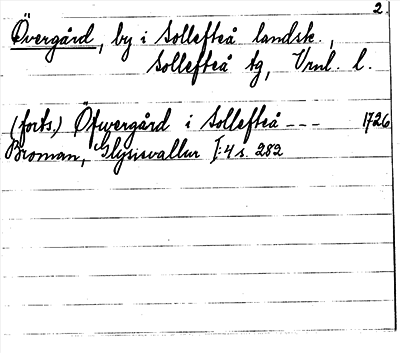 2
Övergård, by i Sollefteå landsk.,
Sollefteå tg, Vrnl. l.
(forts.) Öfwergård i Sollefteå --- 1726
Broman, Glysisvallur I:4 s. 282